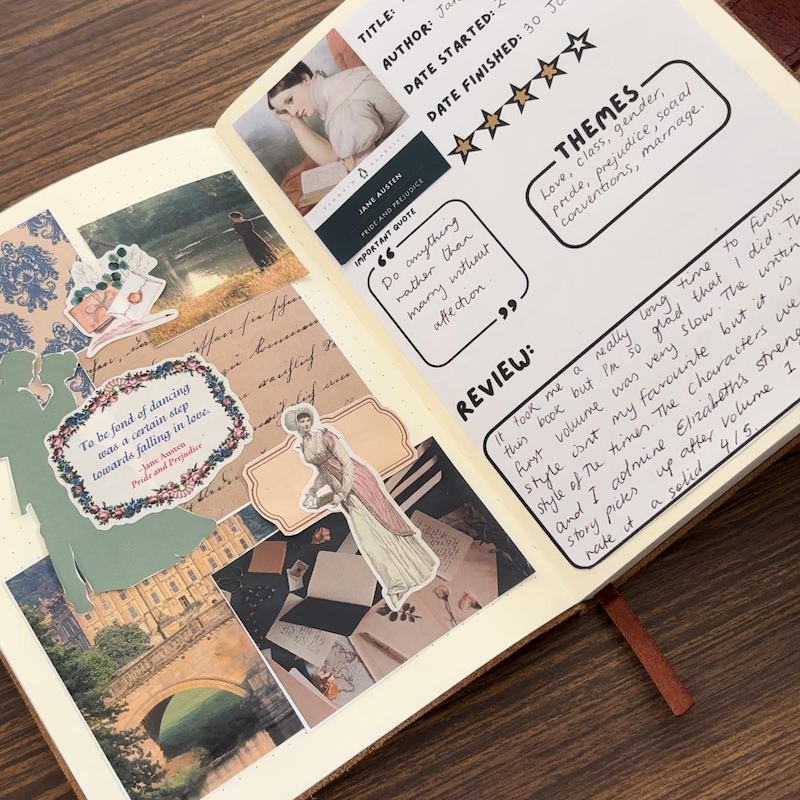 To be fond of dancing
was a certain step
towards falling in love.
-Jane Austen
Pride and Prejudice
TITLE:
AUTHOR: Jan
DATE STARTED: 2
DATE FINISHED: 30 Ja
PENGUIN CLASSICS
JANE AUSTEN
PRIDE AND PREJUDICE
THEMES
Love, class, gender,
pride, prejudice, social
conventions, marriage.
IMPORTANT QUOTE
“
Do anything
rather than
marry without
affection.
”
REVIEW:
It took me a really long time to finish
this book but I'm so glad that I did. Th
first volume was very slow. The writin
style isn't my favourite but it is
style of the times. The characters we
and I admire Elizabeth's streng
story picks up after volume 1
rate it a solid 4/5.